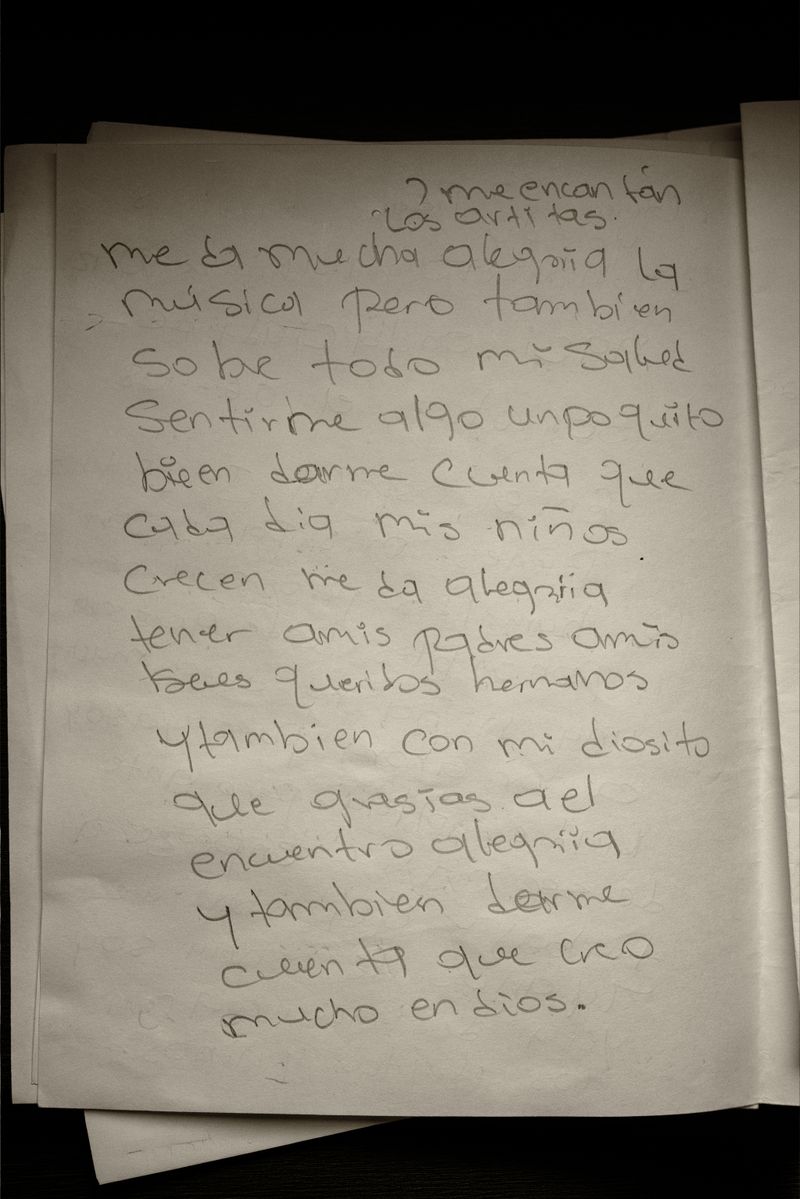 ? me encantán
Los artitas.
me da mucha alegriia la
música pero tambien
sobe todo mi salued
Sentirme algo unpoquito
bieen darme cuenta que
cada dia mis niños
crecen me da alegriia
tener amis padres amis
queridos hermanos
ytambien con mi diosito
que grasias ael
encuentro alegriia
y tambien darme
cueenta que creo
mucho en dios.